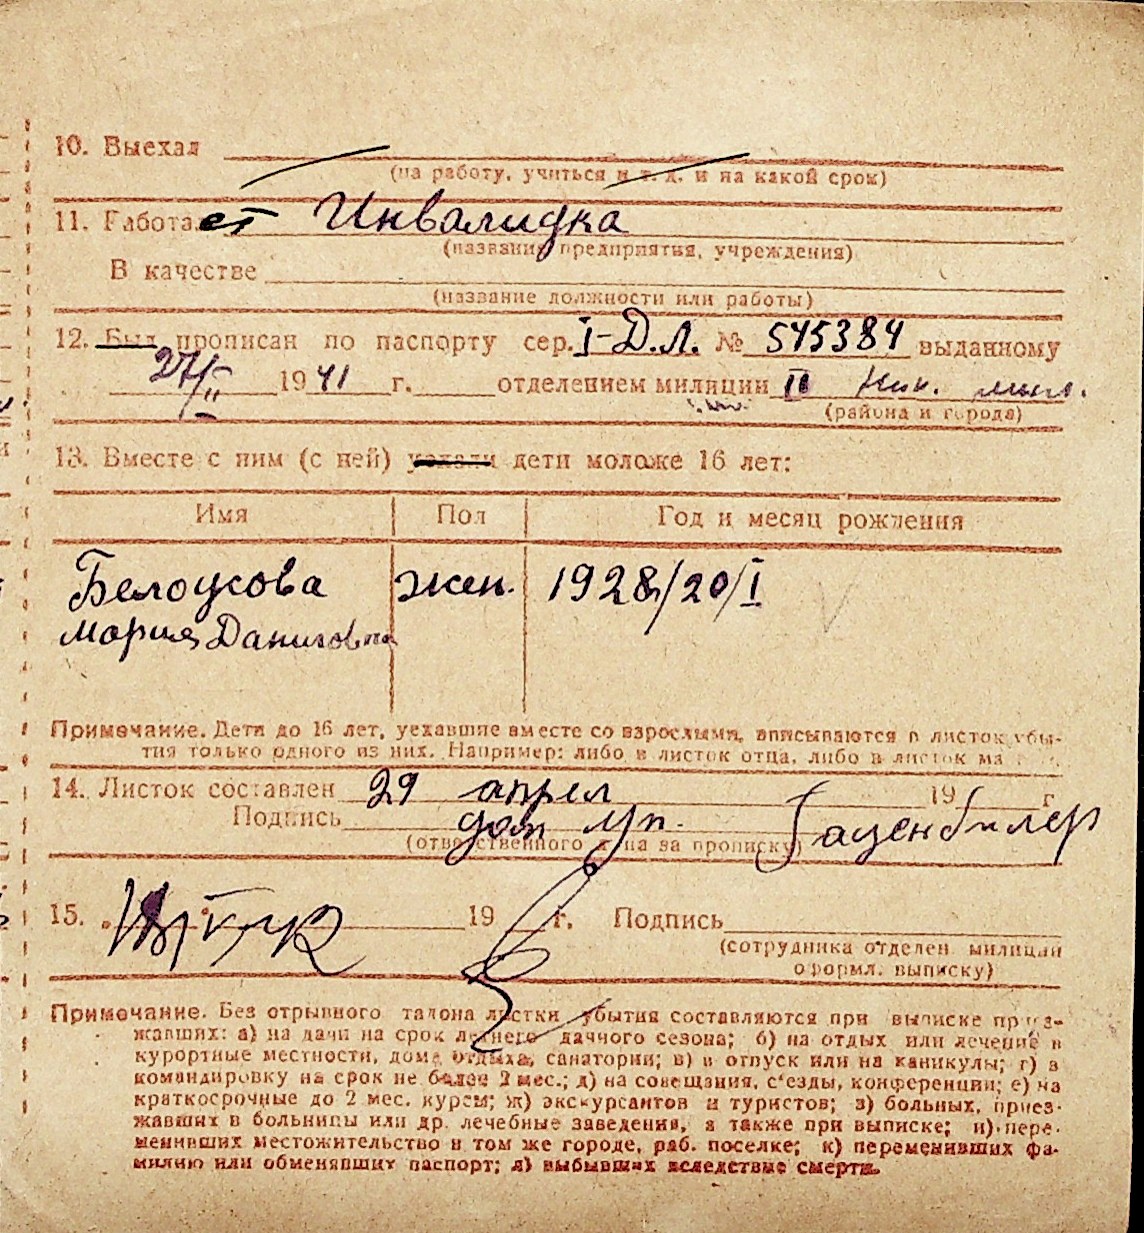 10. Выехал
(на работу, учиться и т. д. и на какой срок)
11. Работает Инвалидка
(название предприятия, учреждения)
В качестве
(название должности или работы)
12. Был прописан по паспорту сер. I-Д.Л. № 545384 выданному
27/II 1941 г. отделением милиции II
(района и города)
13. Вместе с ним (с ней) уехали дети моложе 16 лет:
Имя Пол Год и месяц рождения
Белоусова жен. 1928/20/I
Мария Даниловна
Примечание. Дети до 16 лет, уехавшие вместе со взрослыми, вписываются в листок убы-
тия только одного из них. Например: либо в листок отца, либо в листок ма
14. Листок составлен 29 апрел 19 г.
Подпись дом уп.
(ответственного лица за прописку)
15. 19 г. Подпись
(сотрудника отделен. милиции
оформл. выписку)
Примечание. Без отрывного талона листки убытия составляются при выписке приез-
жавших: а) на дачи на срок летнего дачного сезона; б) на отдых или лечение в
курортные местности, дома отдыха, санатории; в) в отпуск или на каникулы; г) в
командировку на срок не более 2 мес.; д) на совещания, с'езды, конференции; е) на
краткосрочные до 2 мес. курсы; ж) экскурсантов и туристов; з) больных, приез-
жавших в больницы или др. лечебные заведения, а также при выписке; и) пере-
менивших местожительство в том же городе, раб. поселке; к) переменивших фа-
милию или обменявших паспорт; л) выбывших вследствие смерти.